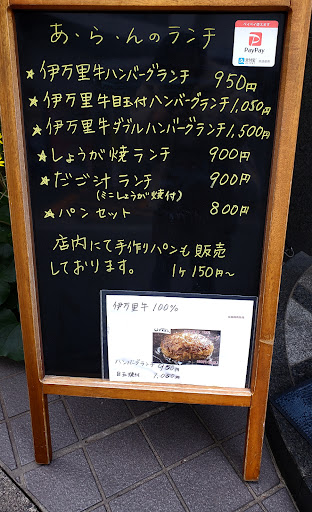 あ・ら・んのランチ
PayPay
★伊万里牛ハンバーグランチ 950円
★伊万里牛目玉付ハンバーグランチ1,050円
★伊万里牛ダブルハンバーグランチ1,500円
★しょうが焼ランチ 900円
★だご汁ランチ 900円
(ミニしょうが焼付)
★パンセット 800円
店内にて手作りパンも販売
しております。 1ケ150円〜
伊万里牛 100%
ハンバーグランチ 950円
目玉焼付 1,050円